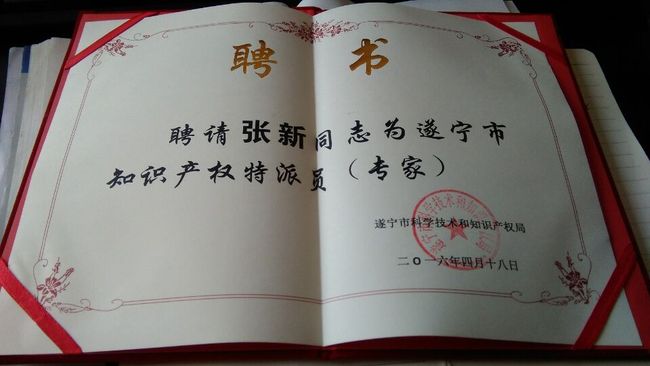 聘 书
聘请张新同志为遂宁市
知识产权特派员（专家）
遂宁市科学技术和知识产权局
二O一六年四月十八日